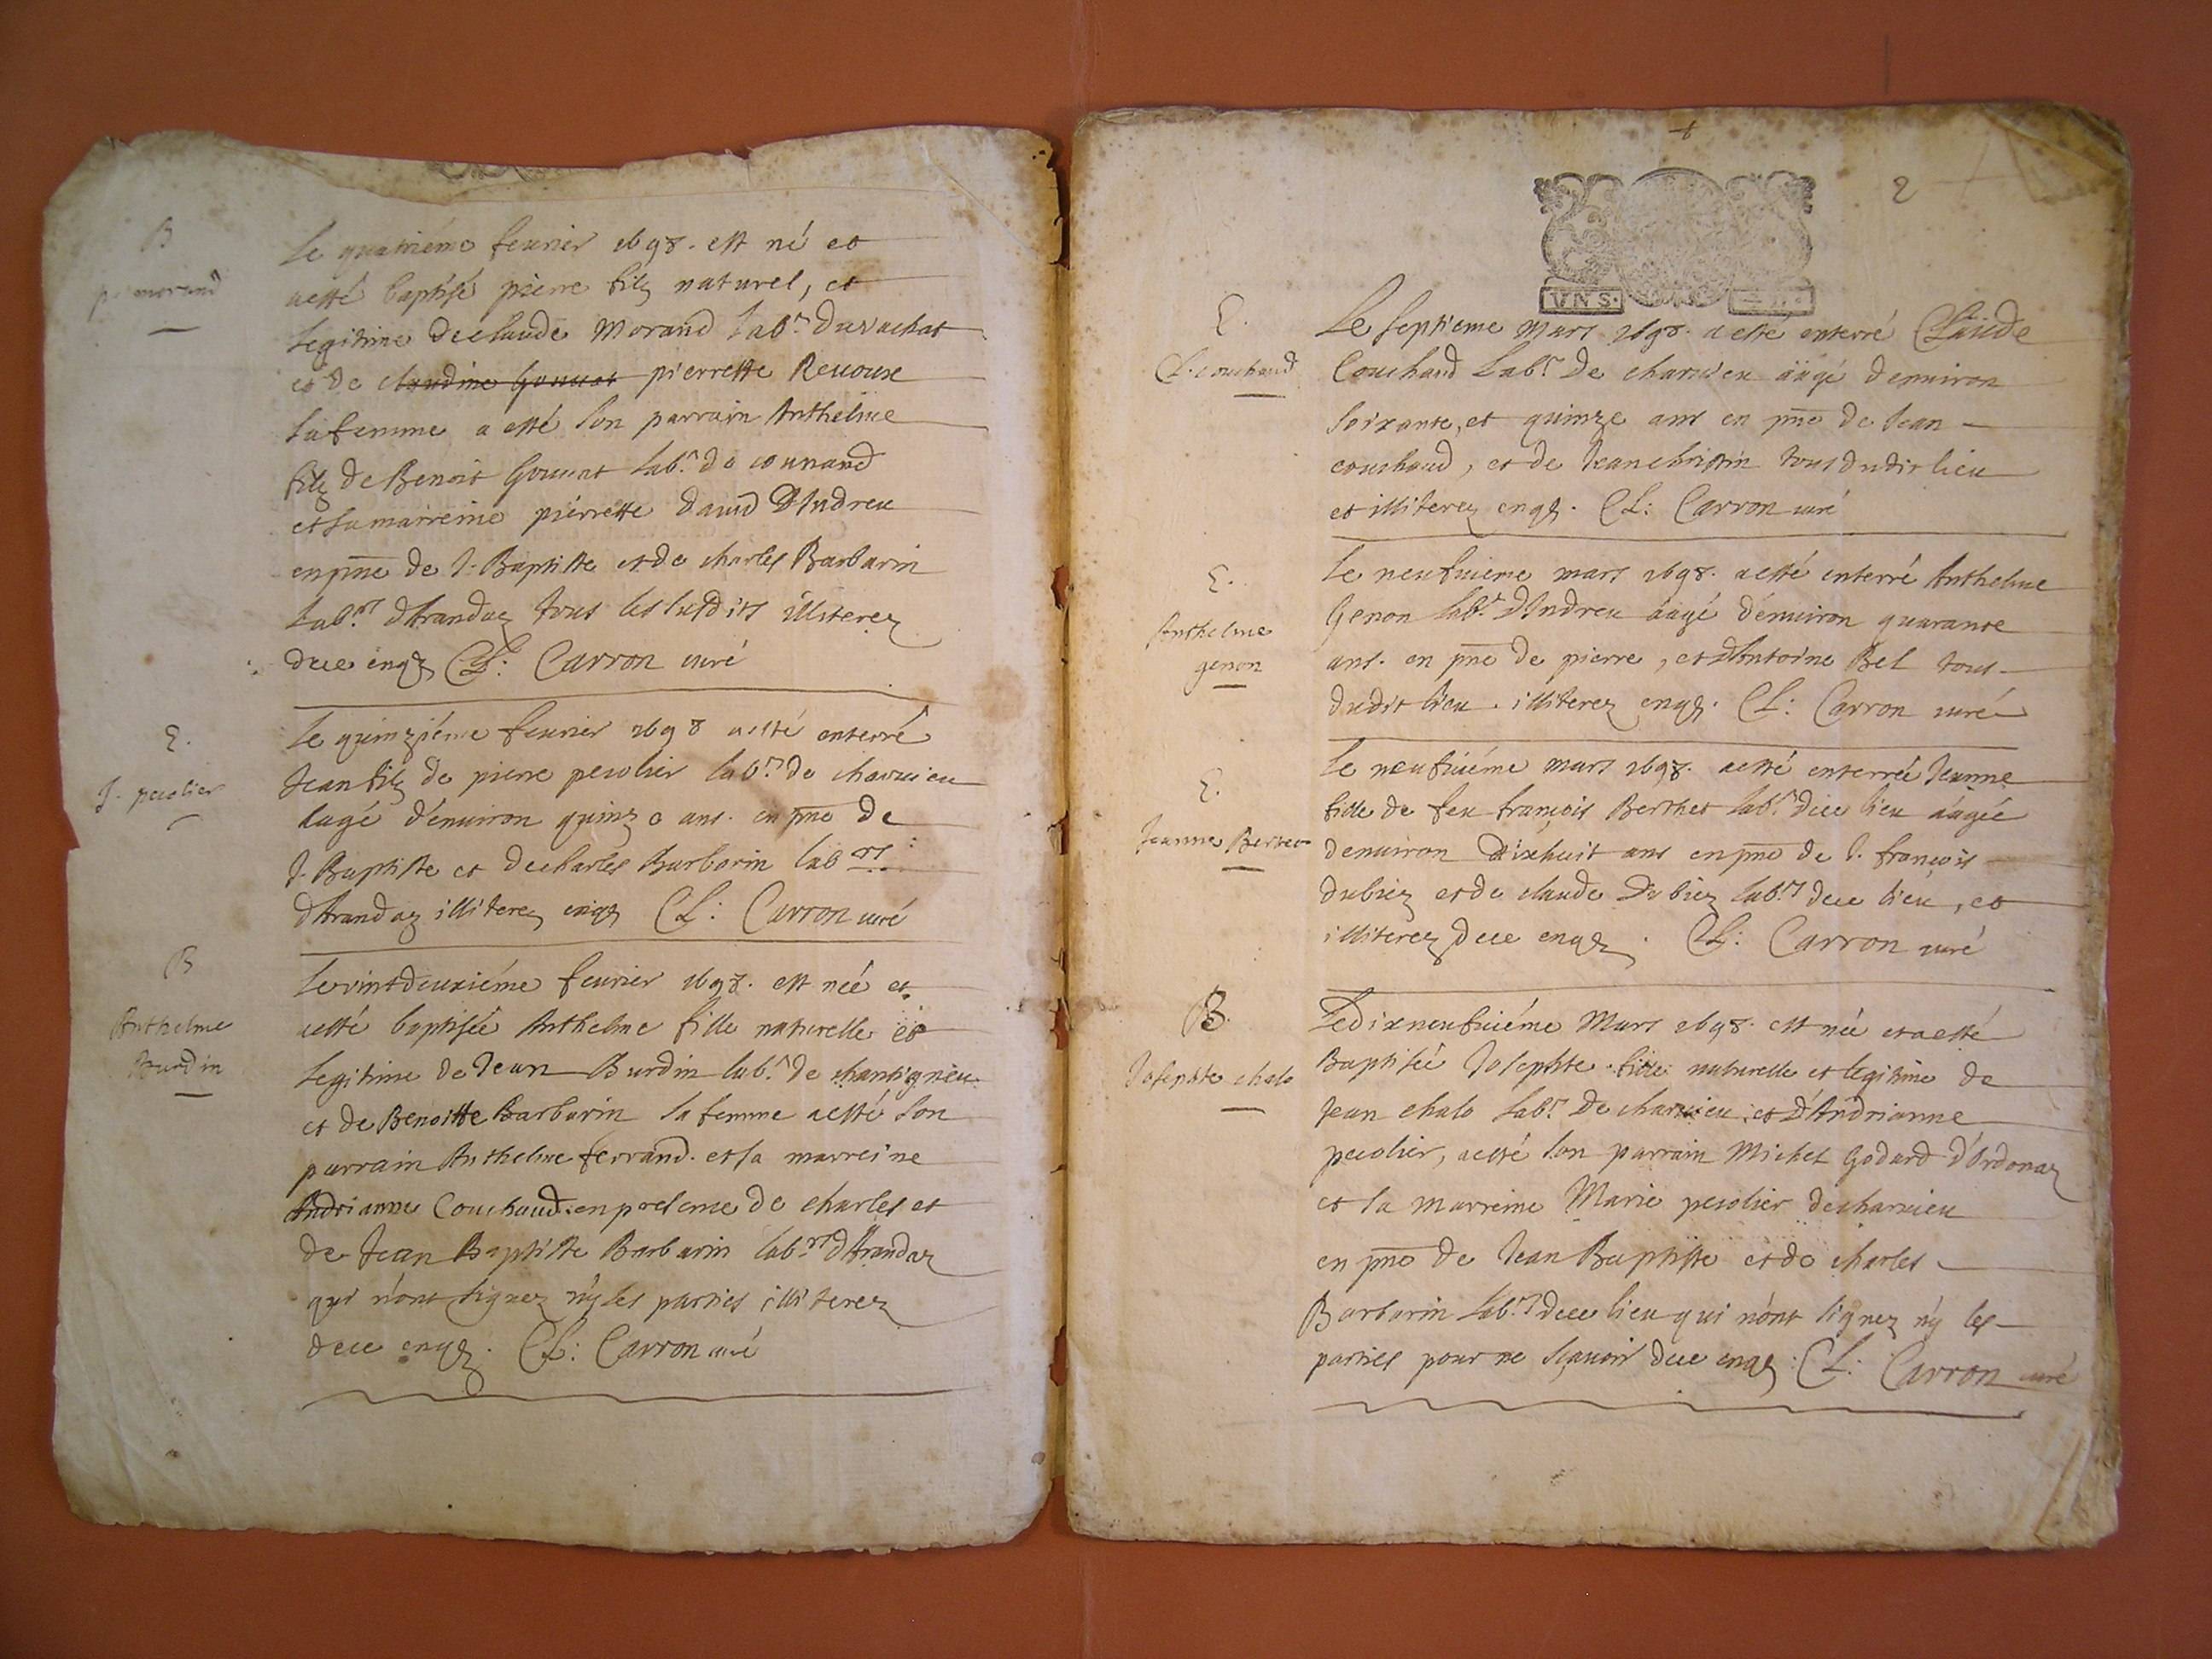 B
p. morand
Le quatriéme feurier 1698. est né et
aesté baptisé pierre filz naturel, et
legitime declaude Morand lab.r duvachat
et de claudine Gouuat pierrette Reuoux
sa femme a esté son parrain Anthelme
filz de Benoit Gouuat lab.r de counand
et sa marreine pierrette dauid d'Andreu
en pnce de J. Baptiste et de charles Barbarin
Lab.rs d'Arandaz tous les susdits illiterez
dece enqz CL: Carron curé
E.
J. pecolier
Le quinziéme feurier 1698 aesté enterré
Jean filz de pierre pecolier lab.r de charuieu
aagé d'enuiron quinze ans. en pnce de
J. Baptiste et decharles Barbarin lab.rs
d'Arandaz illiterez enqz CL: Carron curé
B
Anthelme
Burdin
Le vintdeuxiéme feurier 1698. est née et
aesté baptisée Anthelme fille naturelle et
legitime de Jean Burdin lab.r de chantigneu
et de Benoitte Barbarin sa femme aesté son
parrain Anthelme ferrand. et sa marreine
Andrianne Couchaud. en presence de charles et
de Jean Baptiste Barbarin lab.rs d'Arandaz
qui n'ont signez n'y les parties illiterez
dece enqz. CL: Carron curé
2
E.
Cl. couchaud
Le septieme Mars 1698. aesté enterré Claude
Couchaud Lab.r De charuieu äägé d'enuiron
soixante, et quinze ans en pnce de Jean
couchaud, et de Jean christin tous dudit lieu
et illiterez enqz. CL: Carron curé
E.
Anthelme
genon
Le neufuieme mars 1698. aesté enterré Anthelme
Genon lab.r d'Andreu äägé d'énuiron quarante
ans. en pnce de pierre, et d'Antoine Bel tous
dudit lieu. illiterez enqz. CL: Carron curé
E.
Jeanne Bertet
Le neufuiéme mars 1698. aesté enterrée Jeanne
fille de feu françois Berthet lab.r dece lieu äägée
denuiron dixhuit ans en pnce de J. françois
dubiez et de claude Dubiez lab.rs dece lieu, et
illiterez dece enqz. CL: Carron curé
B.
Josephte chalo
Le dixneufuiéme Mars 1698. est née et aesté
Baptisée Josephte fille naturelle et legitime de
Jean chalo Lab.r De charuieu, et d'Andrianne
pecolier, aesté son parrain Michel Godard d'Ordonaz
et sa marreine Marie pecolier decharuieu
en pnce de Jean Baptiste et de charles
Barbarin lab.rs dece lieu qui n'ont signez n'y les
parties pour ne sçauoir dece enqz. CL: Carron curé